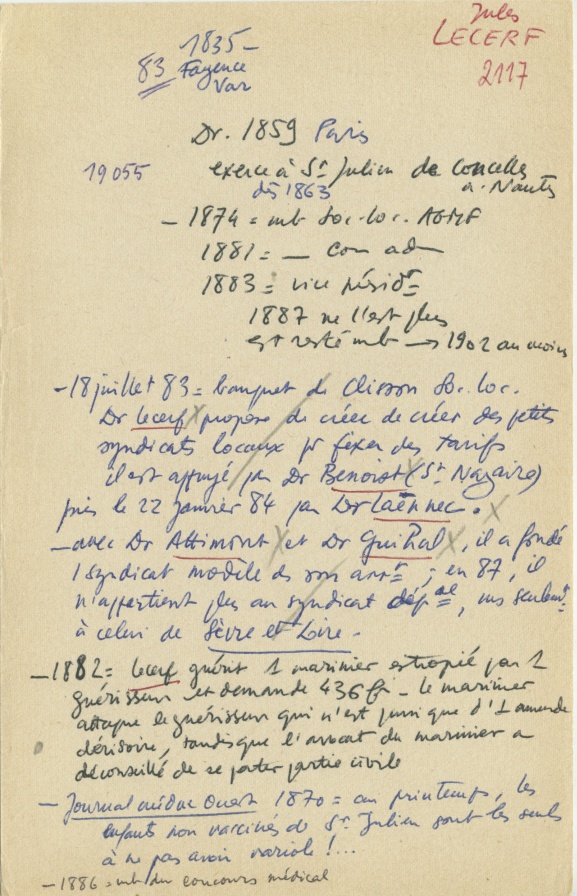 Jules
LECERF
2117
1835-
83 Fayence
Var
Dr. 1859 Paris
19055
exerce à St Julien de Concelles
dès 1863 à Nantes
- 1874 = mb Soc. loc. AGMF
1881 = — com ad
1883 = vice présidt
1887 ne l'est plus
est resté mb → 1902 au moins
- 18 juillet 83 = banquet de Clisson Soc. loc.
Dr Lecerf X propose de créer de créer des petits
syndicats locaux pr fixer des tarifs
il est appuyé par Dr Benoist X (St Nazaire)
puis le 22 janvier 84 par Dr Laënnec. X
- avec Dr Attimont X et Dr Guihal X, il a fondé
1 syndicat modèle ds son arrt ; en 87, il
n'appartient plus au syndicat dépal, ms seulemt
à celui de Sèvre et Loire.
- 1882 = Lecerf guérit 1 marinier estropié par 1
guérisseur et demande 436 fr - le marinier
attaque le guérisseur qui n'est puni que d'1 amende
dérisoire, tandis que l'avocat du marinier a
déconseillé de se porter partie civile
- Journal méd de Ouest 1870 = au printemps, les
enfants non vaccinés de St Julien sont les seuls
à ne pas avoir variole !...
- 1886 = mb du concours médical